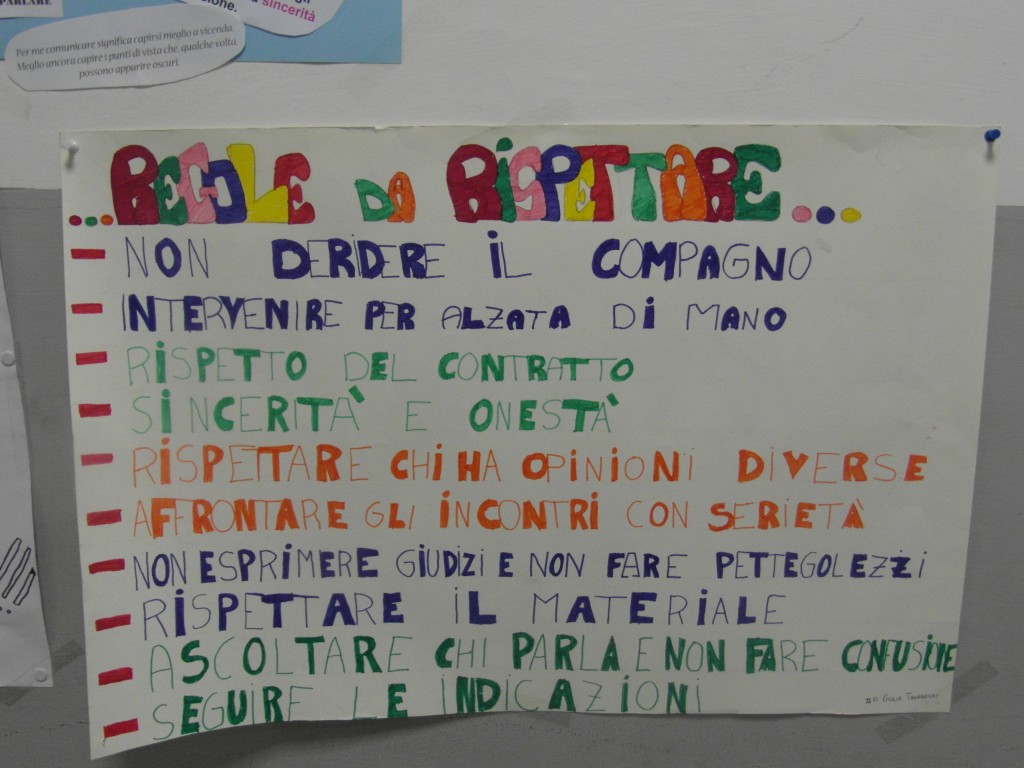 PARLARE
sione.
sincerità
Per me comunicare significa capirsi meglio a vicenda.
Meglio ancora capire i punti di vista che, qualche volta,
possono apparire oscuri.
...REGOLE DA RISPETTARE...
- NON DERIDERE IL COMPAGNO
- INTERVENIRE PER ALZATA DI MANO
- RISPETTO DEL CONTRATTO
- SINCERITÀ E ONESTÀ
- RISPETTARE CHI HA OPINIONI DIVERSE
- AFFRONTARE GLI INCONTRI CON SERIETÀ
- NON ESPRIMERE GIUDIZI E NON FARE PETTEGOLEZZI
- RISPETTARE IL MATERIALE
- ASCOLTARE CHI PARLA E NON FARE CONFUSIONE
- SEGUIRE LE INDICAZIONI